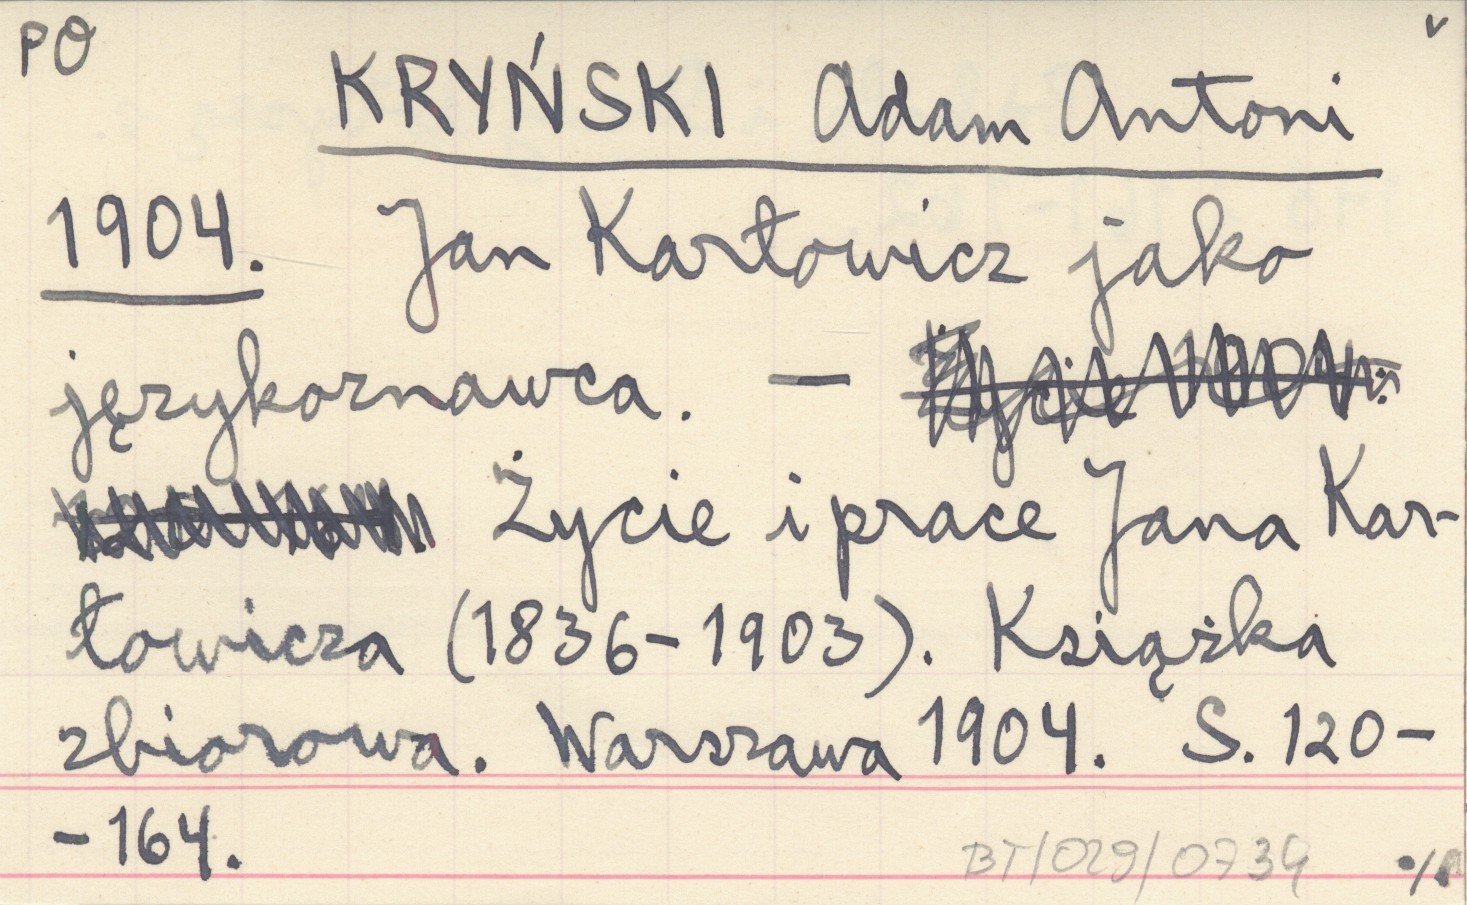 PO v
KRYŃSKI Adam Antoni
1904. Jan Karłowicz jako
językoznawca. –
Życie i prace Jana Kar-
łowicza (1836-1903). Książka
zbiorowa. Warszawa 1904. S. 120-
-164.
BT/029/0734 ./.